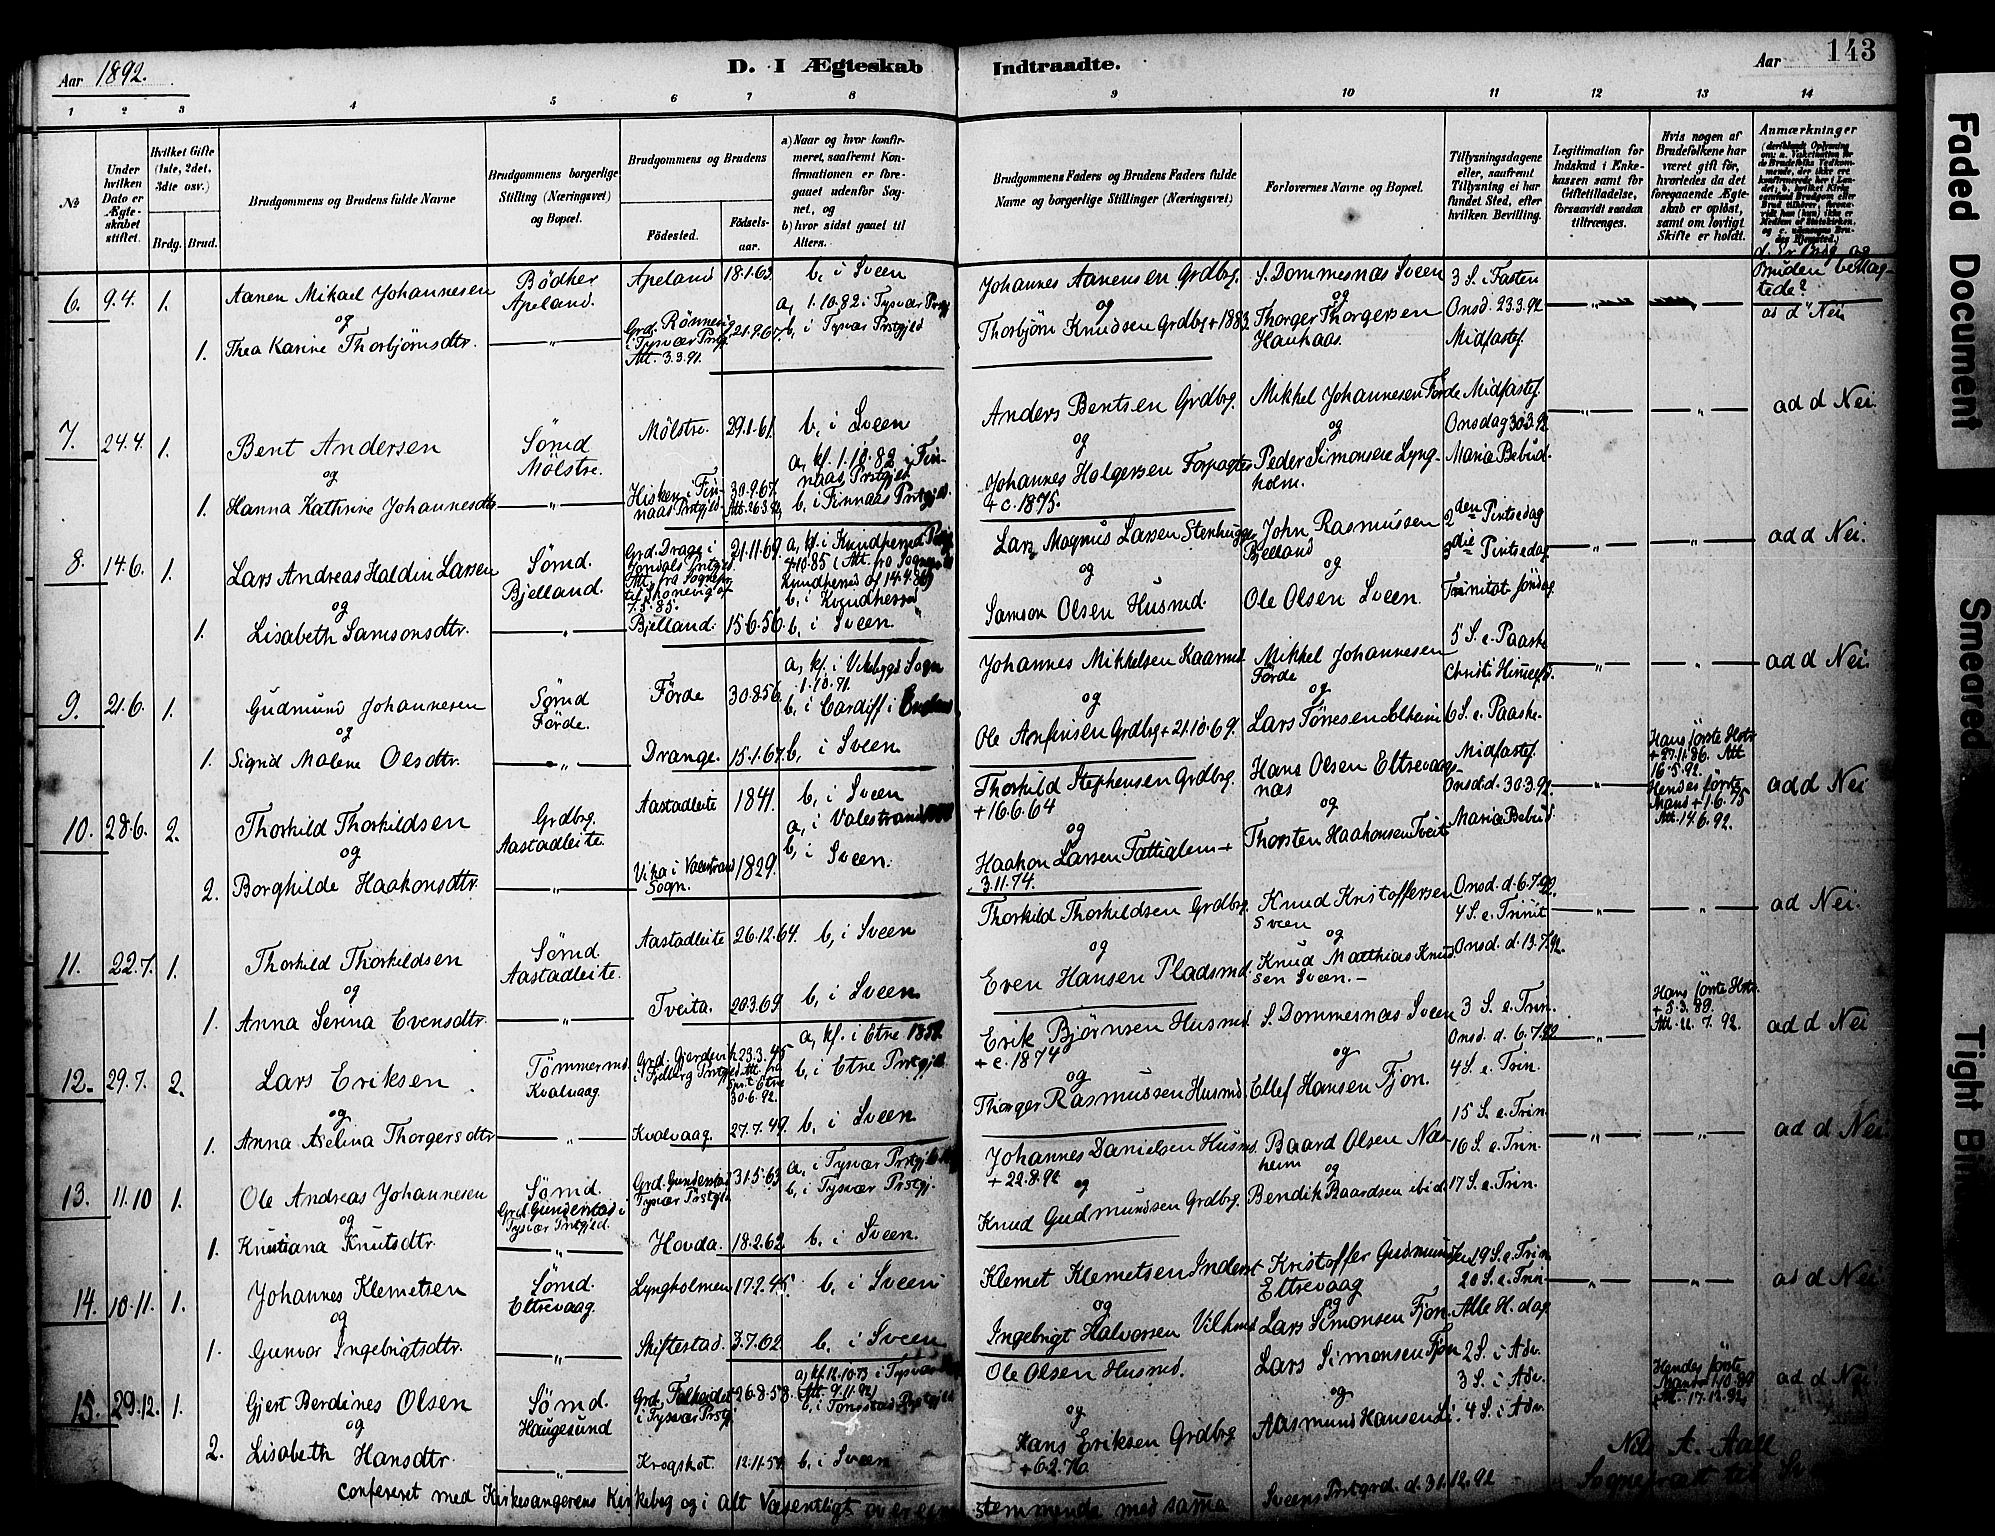 Aar 1892.
D. I Ægteskab Indtraadte.
Aar 143
1 2 3 4 5 6 7 8 9 10 11 12 13 14
No
Under hvilken Dato er Ægteskabet stiftet.
Hvilket Gifte (1ste, 2det, 3die osv.)
Brdg. Brud.
Brudgommens og Brudens fulde Navne
Brudgommens borgerlige Stilling (Næringsvei) og Bopæl.
Brudgommens og Brudens
Fødested.
Fødselsaar.
a) Naar og hvor konfirmeret, saafremt Konfirmationen er foregaaet udenfor Sognet, og
b) hvor sidst gaaet til Alters.
Brudgommens Faders og Brudens Faders fulde Navne og borgerlige Stillinger (Næringsvei)
Forlovernes Navne og Bopæl.
Tillysningsdagene eller, saafremt Tillysning ei har fundet Sted, efter hvilken Bevilling.
Legitimation for Indskud i Enkekassen samt for Giftetilladelse, forsaavidt saadan tiltrænges.
Hvis nogen af Brudefolkene har været gift før, hvorledes da det foregaaende Ægteskab er opløst, samt om lovligt Skifte er holdt.
Anmærkninger
6. 9.4. 1. Aanen Mikael Johannesen Bödker Apeland. Apeland 18.1.63 b, i Sveen Johannes Aanensen Grdbrg. S. Dommesnæs Sveen 3 S. i Fasten
og a, 1.10.82 i Tysvær Prstgj og og Onsd. 23.3.92 ad d Nei
1. Thea Karine Thorbjörnsdtr. „ Grd. Rönnevig i Tysvær Prstgj. Att. 3.3.91. 21.9.67. b, i Tysvær Prstgjld Thorbjörn Knudsen Grdbrg + 1883 Thorger Thorgersen Haukaas. Midfastef.
7. 24.4. 1. Bent Andersen Sömd Mölstre. Mölstre. 29.1.61. b, i Sveen Anders Bentsen Grdbrg. Mikkel Johannesen Förde Midfastef. „ „ ad d Nei.
og a, kf. 1.10.82 i Finnaas Prstgjld og og Onsdag 30.3.92
1. Hanna Kathrine Johannesdtr „ Hisken i Finnaas Prstgjld. 30.9.67. Att. 26.3.92, b, i Finnaas Prstgjld. Johannes Holgersen Forpagter + c. 1875. Peder Simonsen Lyngholm. Mariæ Bebud.
8. 14.6. 1. Lars Andreas Haldin Larsen Sömd. Bjelland. Grd. Drage i Jondals Prstgjd. 21.11.69. a, kf. i Kvindherred Lars Magnus Larsen Stenhugger John Rasmussen Bjelland 2den Pintsedag „ „ ad d Nei.
og b, i Kvindherred og og 3die Pintsedag
1. Lisabeth Samsonsdtr. „ Bjelland. 15.6.56. b, i Sveen Samson Olsen Husmd. Ole Olsen Sveen. Trinitat. söndag
9. 21.6. 1. Gudmund Johannesen Sömd Förde. Förde 30.8.56. a, kf. i Vikebygd Sogn 1.10.71. b, i Cardiff i England Johannes Mikkelsen Kaarmd. Mikkel Johannesen Förde 5 S. e. Paaske Christi Himmelfd. „ „ ad d Nei.
og og og
1. Sigrid Malene Olsdtr. „ Drange. 15.1.67. b, i Sveen. Ole Arnfinsen Grdbrg + 21.10.69. Lars Tönnesen Solheim 6 S. e. Paaske.
10. 28.6. 2. Thorkild Thorkildsen Grdbrg. Aastadleite. Aastadleite 1841. b, i Sveen Thorkild Stephensen Grdbrg. + 16.6.64 Hans Olsen Eltrevaagnæs Midfastef. Onsd. d. 30.3.92. „ Hans förste Hstr + 27.11.86. Att 16.5.92. Hendes förste Mand + 1.6.75 Att. 14.6.92. ad d Nei
og a, i Valestrand og og
2. Borghilde Haakonsdtr. „ Vika i Valestrand Sogn. 1829. b, i Sveen. Haakon Larsen Fattiglem + 3.11.74. Thorsten Haakonsen Tveit Mariæ Bebud.
11. 22.7. 1. Thorkild Thorkildsen Sömd. Aastadleite. Aastadleite 26.12.64. b, i Sveen Thorkild Thorkildsen Grdbrg. Knud Kristoffersen Sveen Onsd. d. 6.7.92. 4 S. e. Trinit. „ „ ad Nei.
og og og
1. Anna Serina Evensdtr. „ Tveita. 20.3.69 b, i Sveen. Even Hansen Pladsmd. Knud Matthias Knudsen Sveen. Onsd. d. 13.7.92.
12. 29.7. 2. Lars Eriksen Tömmermd. Kvalvaag. Grd. Gjerdevik i Fjelberg Prstgjld 23.3.45 Att. fra Spr. t. Etne 30.6.92. a, kf. i Etne b, i Etne Prstgjld. Erik Björnsen Husmd + c. 1874 S. Dommesnæs Sveen 3 S. e. Trin. Onsd. d. 6.7.92. „ Hans förste Hstr. + 5.3.88. Att. 11.7.92. ad d Nei
og og og
1. Anna Aselina Thorgersdtr „ Kvalvaag. 27.7.49. b, i Sveen Thorger Rasmussen Husmd. Ellef Hansen Fjon. 4 S. e. Trin.
13. 11.10 1. Ole Andreas Johannesen Sömd. Grd. Gunderstad i Tysvær Prstgjld. Grd. Gunderstad Tysvær Prstgjld 31.5.63 a, i Tysvær Prstgj b, i Tysvær Prstgj. Johannes Danielsen Husmd. + 22.8.90 Baard Olsen Næsheim 15 S. e. Trin. 16 S. e. Trin. „ „ ad d Nei.
og og og
1. Kristiana Knutsdtr. „ Hovda. 18.2.62. b. i Sveen. Knud Gudmundsen Grdbrg. Bendik Baardsen ibid. 17 S. e. Trin.
14. 10.11. 1. Johannes Klemetsen Sömd. Eltrevaag. Lyngholmen 17.2.45. b, i Sveen Klemet Klemetsen Inderst Kristoffer Gudmundsen Eltrevaag 19 S. e. Trin. 20 S. e. Trin. „ „ ad d Nei
og og og
1. Gunvor Ingebrigtsdtr. „ Skiftestad 3.7.62 b. i Sveen Ingebrigt Halvorsen Lars Simonsen Fjon. Alle H. dag
15. 29.12. 1. Gjert Berdines Olsen Sömd. Haugesund Grd. Falkeidet i Tysvær Prstgj. 26.8.58 a, kf. 12.10.73 i Tysvær (Att. 9.11.92) Ole Olsen Husmd. Lars Simonsen Fjon 2 S. i Adv. 3 S. i Adv. Hendes förste Mand Att. 17.12.92. ad d Nei
og og og
2. Lisabeth Hansdtr. „ Krogshot. 12.11.54. b. i Sveen Hans Eriksen Grdbrg + 6.2.76. Aasmund Hansen 4 S. i Adv.
confereret med Kirkesangerens Kirkebog og i alt Væsentligt overensstemmende med samme Sveens Prstgrd. d. 31.12.92
Nils A. Aall
Sogneprest til
Faded Document
Smeared
Tight